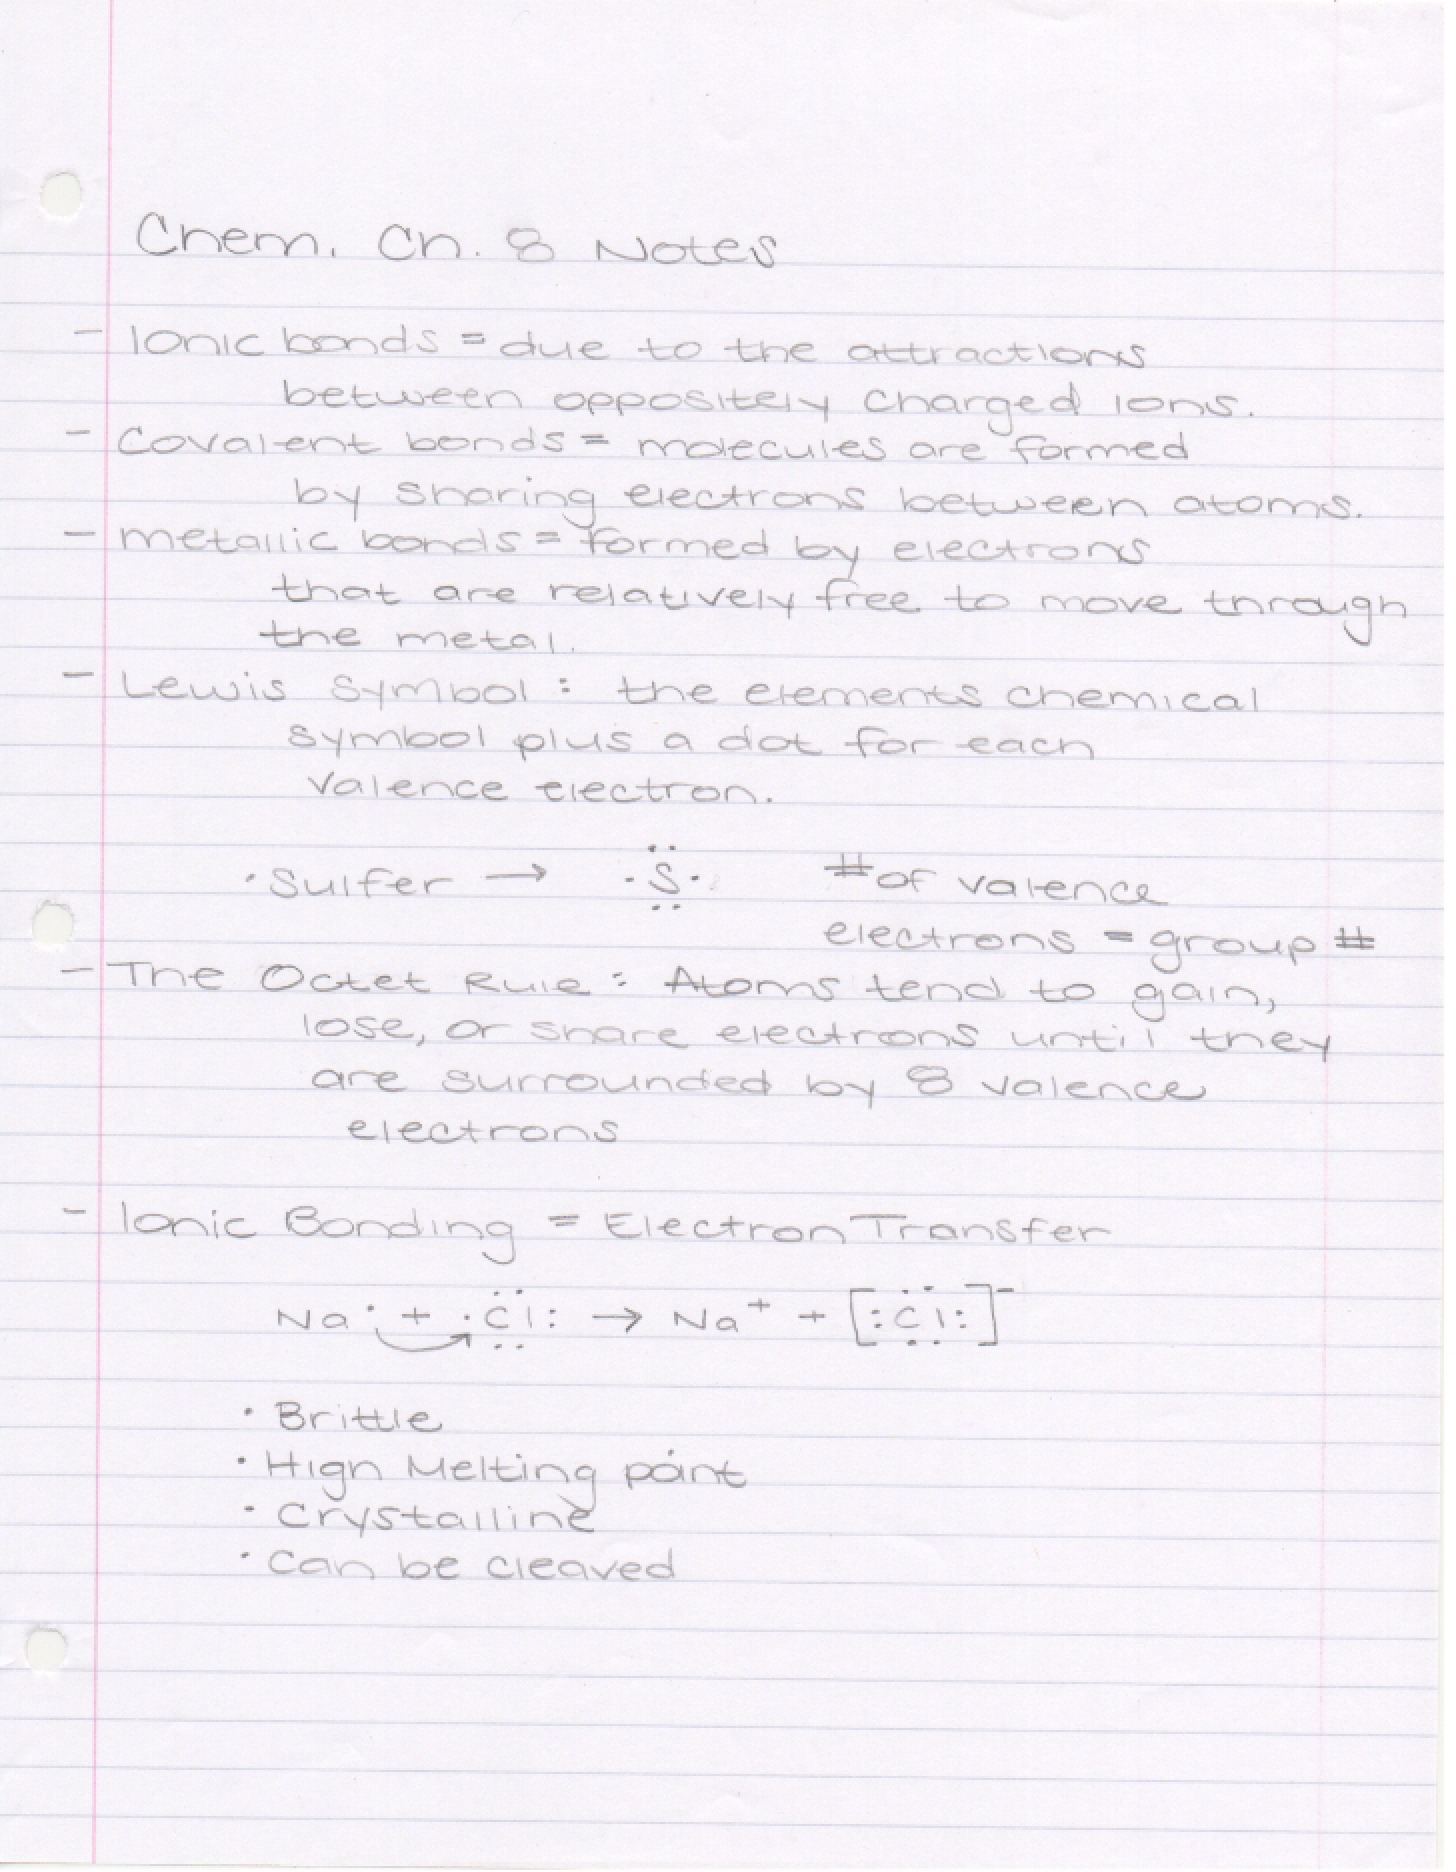 Chem. Ch. 8 Notes
- Ionic bonds = due to the attractions
between oppositely charged ions.
- Covalent bonds = molecules are formed
by sharing electrons between atoms.
- metallic bonds = formed by electrons
that are relatively free to move through
the metal.
- Lewis Symbol : the elements chemical
symbol plus a dot for each
valence electron.
· Sulfer → ·S· # of valence
electrons = group #
- The Octet Rule : Atoms tend to gain,
lose, or share electrons until they
are surrounded by 8 valence
electrons
- Ionic Bonding = Electron Transfer
Na· + ·Cl: → Na⁺ + [:Cl:]⁻
· Brittle
· High Melting point
· Crystalline
· Can be cleaved